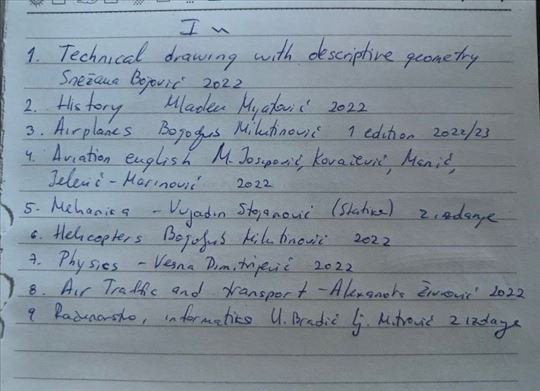 I
1. Technical drawing with descriptive geometry
Snežana Bojović 2022
2. History Mladen Mijatović 2022
3. Airplanes Bogoljub Milutinović 1 edition 2022/23
4. Aviation english M. Josipović, Kovačević, Manić,
Jelenić-Marinović 2022
5. Mehanica - Vujadin Stojanović (Statika) 2. izdanje
6. Helicopters Bogoljub Milutinović 2022
7. Physics - Vesna Dimitrijević 2022
8. Air Traffic and transport - Alexandra Živković 2022
9 Računarstvo, informatika U. Bradić Lj. Mitrović 2 izdanje